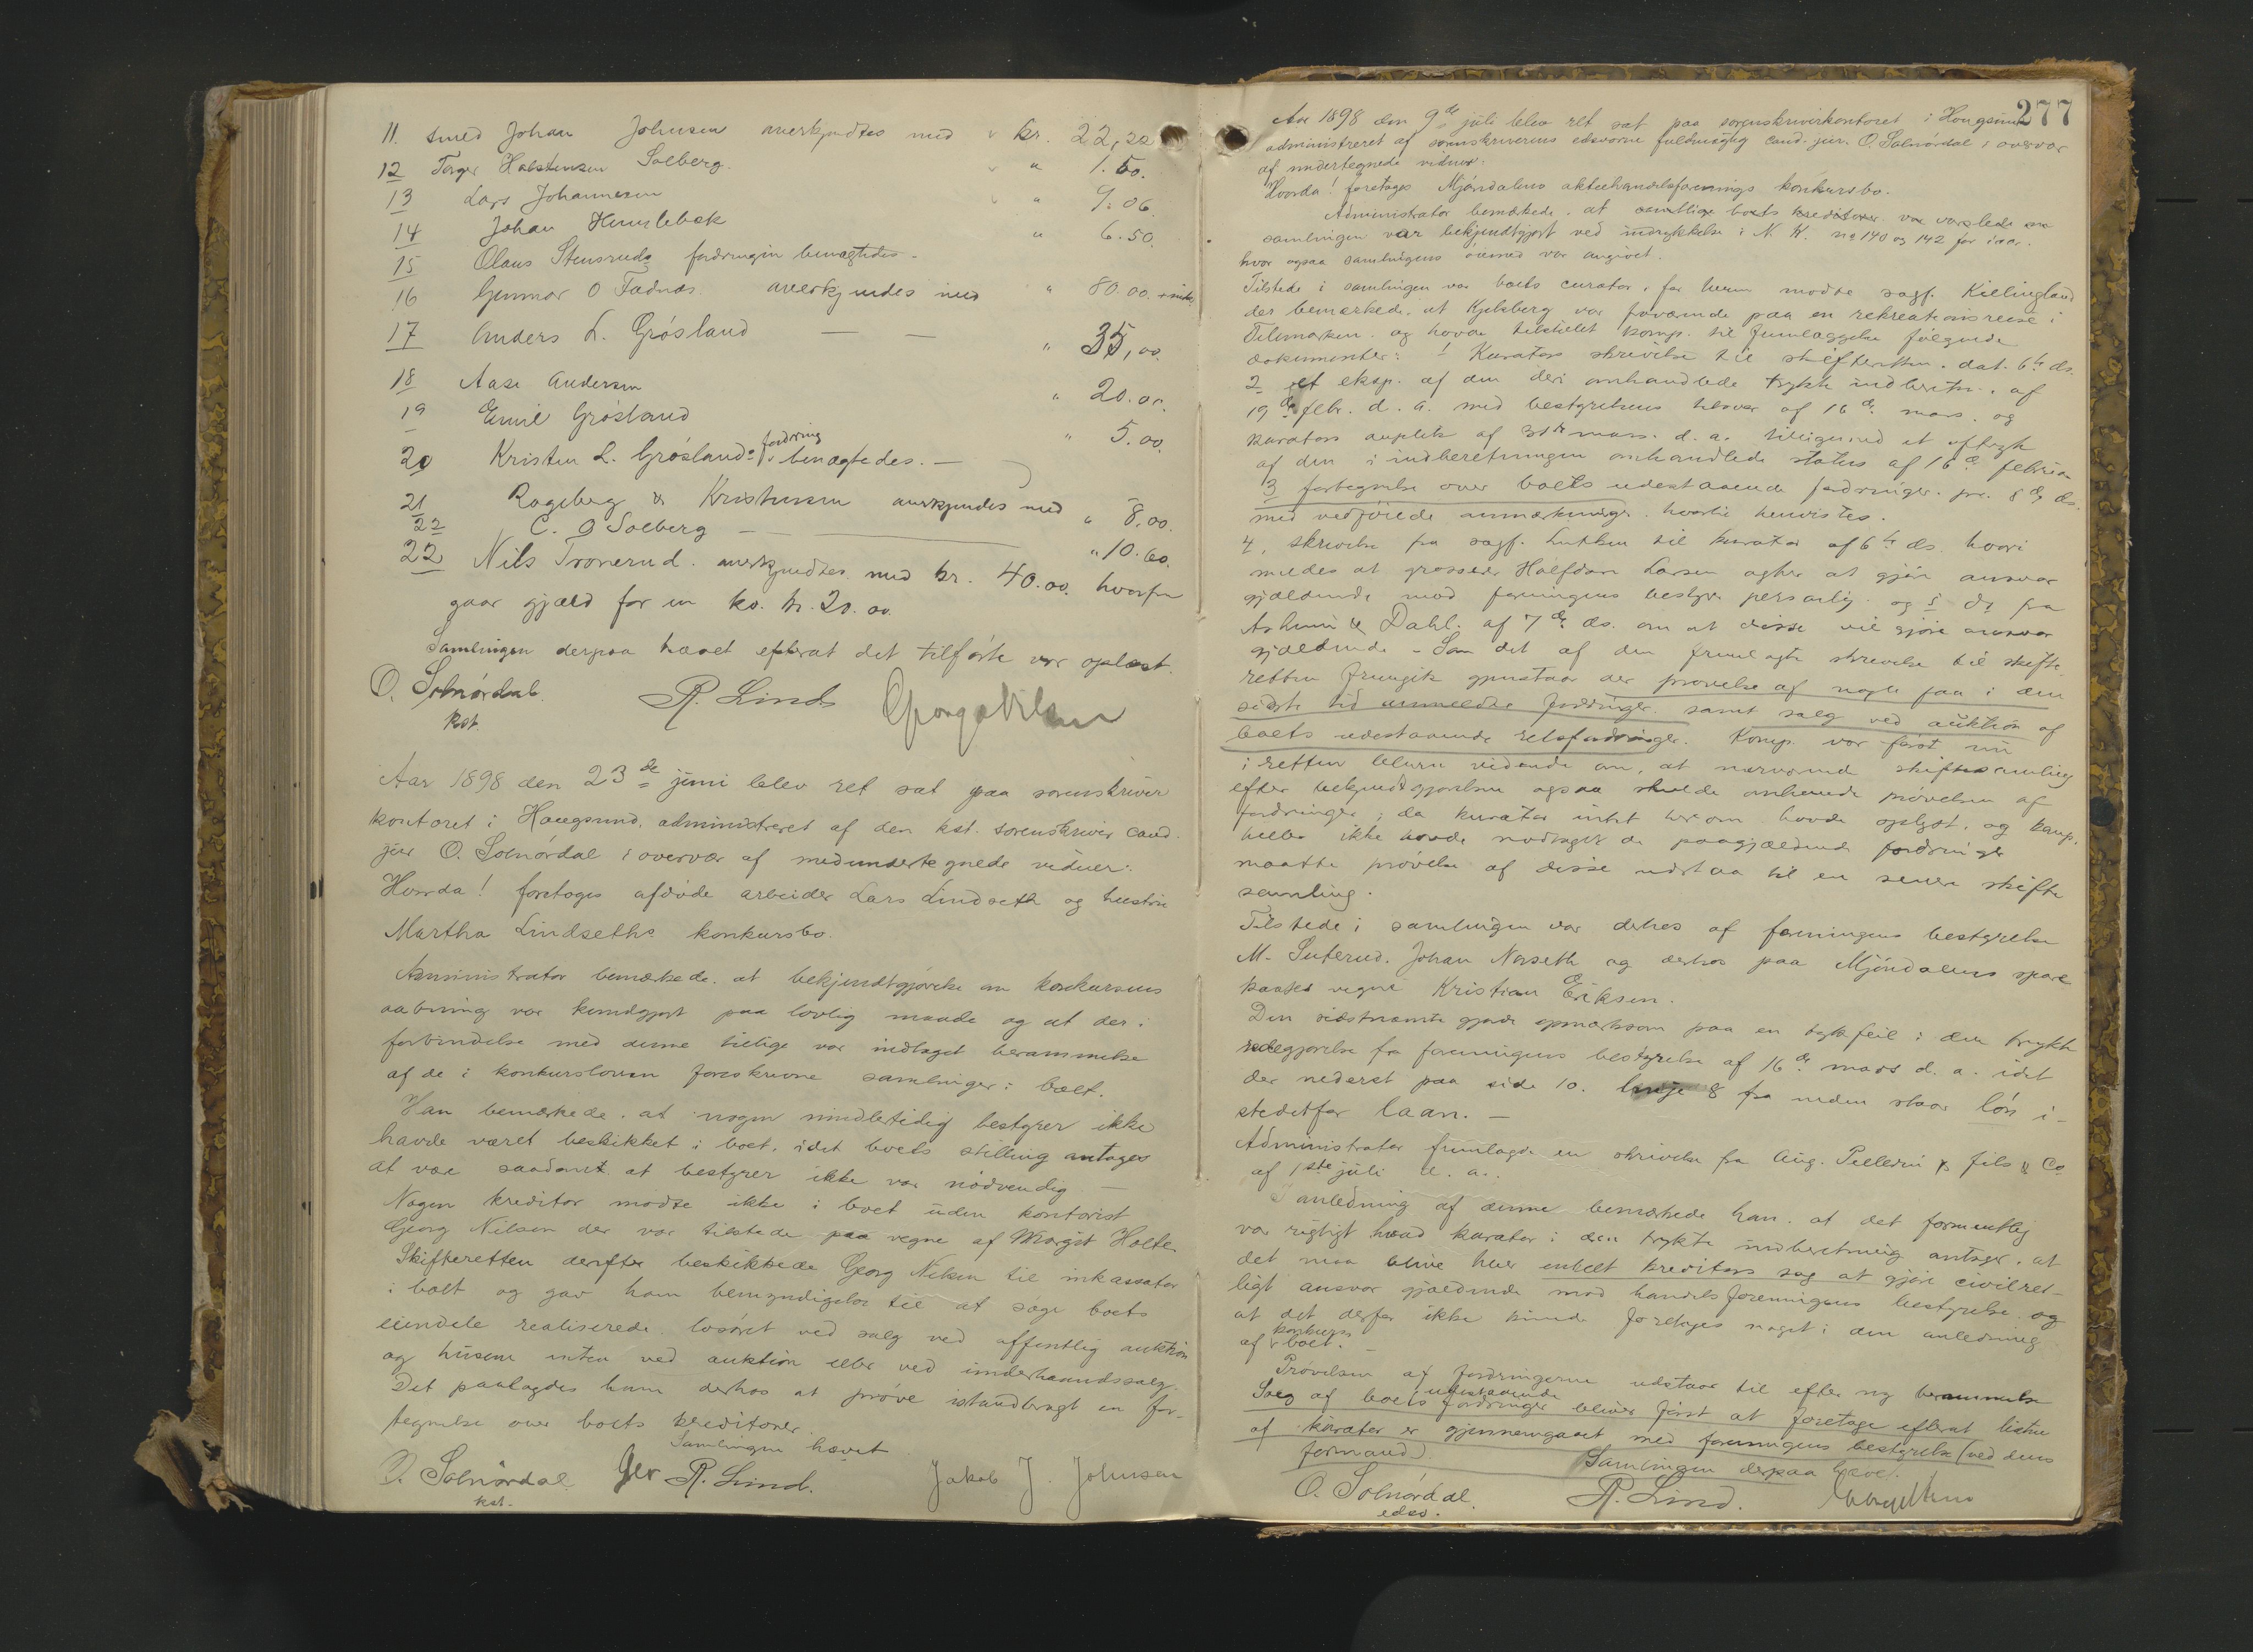 11. Smed Johan Johnsen anerkjendtes med " kr. 22,22
12 Torger Halstensen Solberg. " " 1.50.
13 Lars Johannesen " " 9.06.
14 Johan Humlebæk " 6.50.
15 Olaus Stensruds fordringen benægtedes.
16 Gunnar O Fadnæs anerkjendes med " 80.00
17 Anders L. Grøsland — — " 35,00.
18 Aase Andersen " 20.00.
19 Emil Grøsland " 5.00.
20 Kristen L. Grøslands fordring benægtedes. —
21 Rogeberg & Kristensen anerkjendes med " 8,00.
22 C. O Solberg — — " 10.60.
22 Nils Tronerud. anerkjendtes med kr. 40.00. hvorfra
gaar gjæld for en ko. kr. 20.00.
Samlingen derpaa hævet efterat det tilførte var oplæst.
O. Solnørdal R. Lind Georg Nilsen
kst.
Aar 1898 den 23de juni blev ret sat paa sorenskriver
kontoret i Hougsund. administreret af den kst. sorenskriver cand.
jur O. Solnørdal i overvær af medundertegnede vidner:
Hvorda! foretoges afdøde arbeider Lars Lindseth og hustru
Martha Lindseths konkursbo.
Administrator bemærkede. at bekjendtgjørelse om konkursens
aabning var kundgjort paa lovlig maade og at der i
forbindelse med denne tillige var indtaget berammelse
af de i konkursloven foreskrevne samlinger i boet.
Han bemærkede. at nogen midlertidig bestyrer ikke
havde været beskikket i boet. idet boets stilling antages
at være saadant. at bestyrer ikke var nødvendig —
Nogen kreditor mødte ikke i boet uden kontorist
Georg Nilsen der var tilstede paa vegne af Margit Holte
Skifteretten derefter beskikkede Georg Nilsen til inkassator
i boet og gav ham bemyndigelse til at søge boets
eiendele realiserede. løsøret ved salg ved offentlig auktion
og husene enten ved auktion eller ved underhaandssalg.
Det paalagdes ham derhos at prøve istandbragt en for-
tegnelse over boets kreditorer.
Samlingen hævet
O. Solnørdal R. Lind. Jakob J. Johnsen
kst.
277
Aar 1898 den 9de juli blev ret sat paa sorenskriverkontoret i Hougsund
administreret af sorenskriverens edsvorne fuldmægtig cand. jur. O. Solnørdal i overvær
af undertegnede vidner:
Hvorda! foretoges Mjøndalens aktiehandelsforenings konkursbo.
Administrator bemærkede. at samtlige boets kreditorer var varslede om
samlingen var bekjendtgjort ved indrykkelse i N. K. no 140 og 142 for iaar.
hvor ogsaa samlingens øiemed var angivet.
Tilstede i samlingen var boets curator. for hvem mødte sagf. Kiellingland
der bemærkede. at Kjelsberg var fraværende paa en rekreationsreise i
Telemarken. og havde tilstillet komp. til fremlæggelse følgende
dokumenter: 1 Kurators skrivelse til skifteretten. dat. 6te ds.
2 et eksp. af den deri omhandlede trykte indberetn. af
19de febr. d. a. med bestyrelsens tilsvar af 16de mars. og
kurators af 31te mars. d. a. tilligemed et aftryk
af den i indberetningen omhandlede status af 16de februar
3 fortegnelse over boets udestaaende fordringer. pr. 8de ds.
med vedføiede anmærkninger. hvortil henvistes.
4. skrivelse fra sagf. Lütken til kurator af 6te ds. hvori
meldes at grosserer Halfdan Larsen agter at gjøre ansvar
gjældende mod foreningens bestyr. personlig. og 5 do fra
& Dahl. af 7de ds. om at disse vil gjøre ansvar
gjældende. — Som det af den fremlagte skrivelse til skifte
retten fremgik gjenstaar der prøvelse af nogle faa i den
sidste tid anmeldte fordringer. samt salg ved auktion af
boets udestaaende fordringer. Komp. var først nu
i retten bleven vidende om, at nærværende skiftesamling
efter bekjendtgjørelsen ogsaa skulde omhandle prøvelsen af
fordringer, da kurator intet herom havde oplyst. og komp.
heller ikke havde modtaget de paagjældende fordringer
maatte prøvelse af disse udstaa til en senere skifte
samling.
Tilstede i samlingen var derhos af foreningens bestyrelse
M. Suterud. Johan Narseth og derhos paa Mjøndalens spare
kasses vegne Kristian Eriksen.
Den sidstnævnte gjorde opmærksom paa en trykfeil i den trykte
redegjørelse fra foreningens bestyrelse af 16de mars d. a. idet
der nederst paa side 10. linje 8 fra neden staar løn i-
stedetfor laan. —
Administrator fremlagde en skrivelse fra Aug. Pellerin fils & Co
af 1ste juli d. a.
I anledning af denne bemærkede han. at det formentlig
var rigtigt hvad kurator i den trykte indberetning antager. at
det maa blive hver enkelt kreditors sag at gjøre civilret-
ligt ansvar gjældende mod handelsforeningens bestyrelse. og
at det derfor ikke kunde foretages noget i den anledning
af konkursboet. —
Prøvelsen af fordringerne udstaar til efter ny berammelse
Salg af boets udestaaende fordringer bliver først at foretage efterat listen
af kurator er gjennemgaaet med foreningens bestyrelse (ved dens
formand).
Samlingen derpaa hævet.
O. Solnørdal. R. Lind.
edsv.